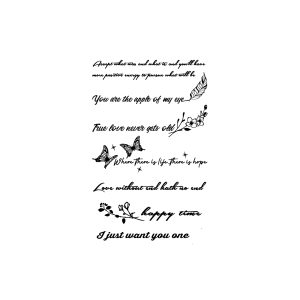 Accept what was and what is and you'll have
more positive energy to pursue what will be
You are the apple of my eye
True love never gets old
Where there is life there is hope
Love without end hath no end
happy time
I just want you one